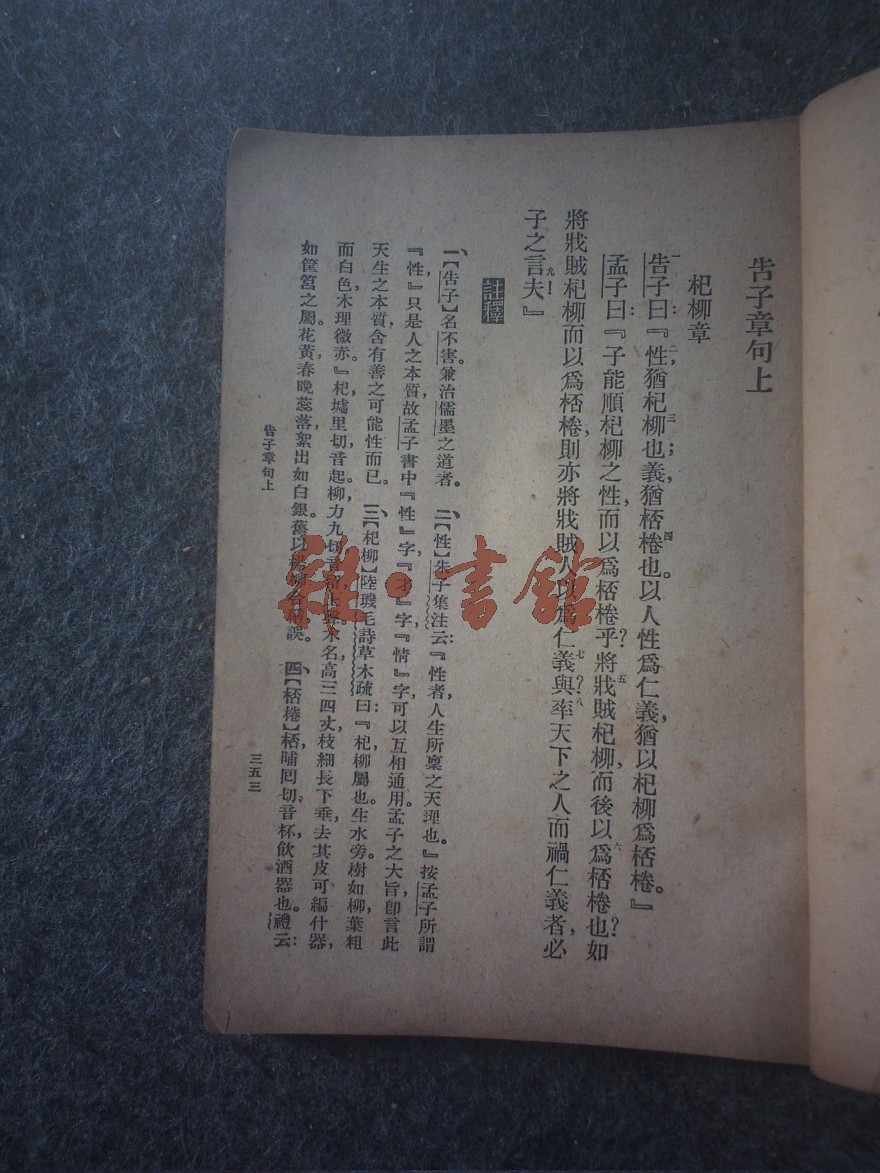 告子章句上
杞柳章
告子曰:『性,猶杞柳也;義,猶桮棬也。以人性爲仁義,猶以杞柳爲桮棬。』
孟子曰:『子能順杞柳之性,而以爲桮棬乎?將戕賊杞柳,而後以爲桮棬也?如
將戕賊杞柳而以爲桮棬,則亦將戕賊人以爲仁義與?率天下之人而禍仁義者,必
子之言夫!』
註釋
一、【告子】名不害。兼治儒墨之道者。 二、【性】朱子集注云:『性者,人生所稟之天理也。』按孟子所謂
『性,』只是人之本質,故孟子書中『性』字,『才』字,『情』字可以互相通用。孟子之大旨,卽言此
天生之本質,含有善之可能性而已。 三、【杞柳】陸璣毛詩草木疏曰:『杞,柳屬也。生水旁,樹如柳,葉粗
而白色,木理微赤。』杞,墟里切,音起。柳,力九切,音 木名,高三四丈,枝細長下垂,去其皮可編什器,
如筐筥之屬。花黃,春晚蕊落,絮出如白銀。舊以 誤。 四、【桮棬】桮,晡囘切,音杯,飲酒器也。禮云:
告子章句上
三五三
雜·書館